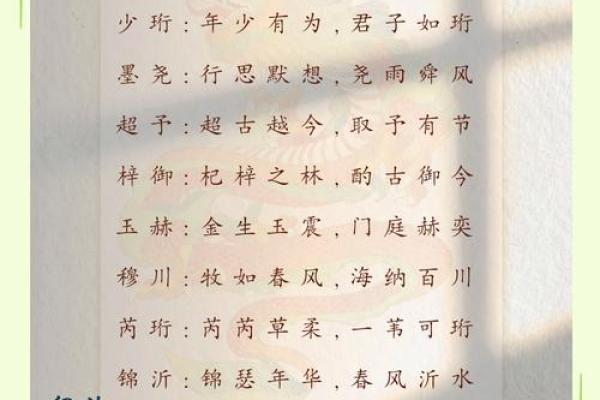 少珩：年少有为，君子如珩
墨尧：行思默想，尧雨舜风
超予：超古越今，取予有节
梓御：杞梓之林，酌古御今
玉赫：金生玉震，门庭赫奕
穆川：牧如春风，海纳百川
芮珩：芮芮草柔，一苇可珩
锦沂：锦瑟年华，春风沂水